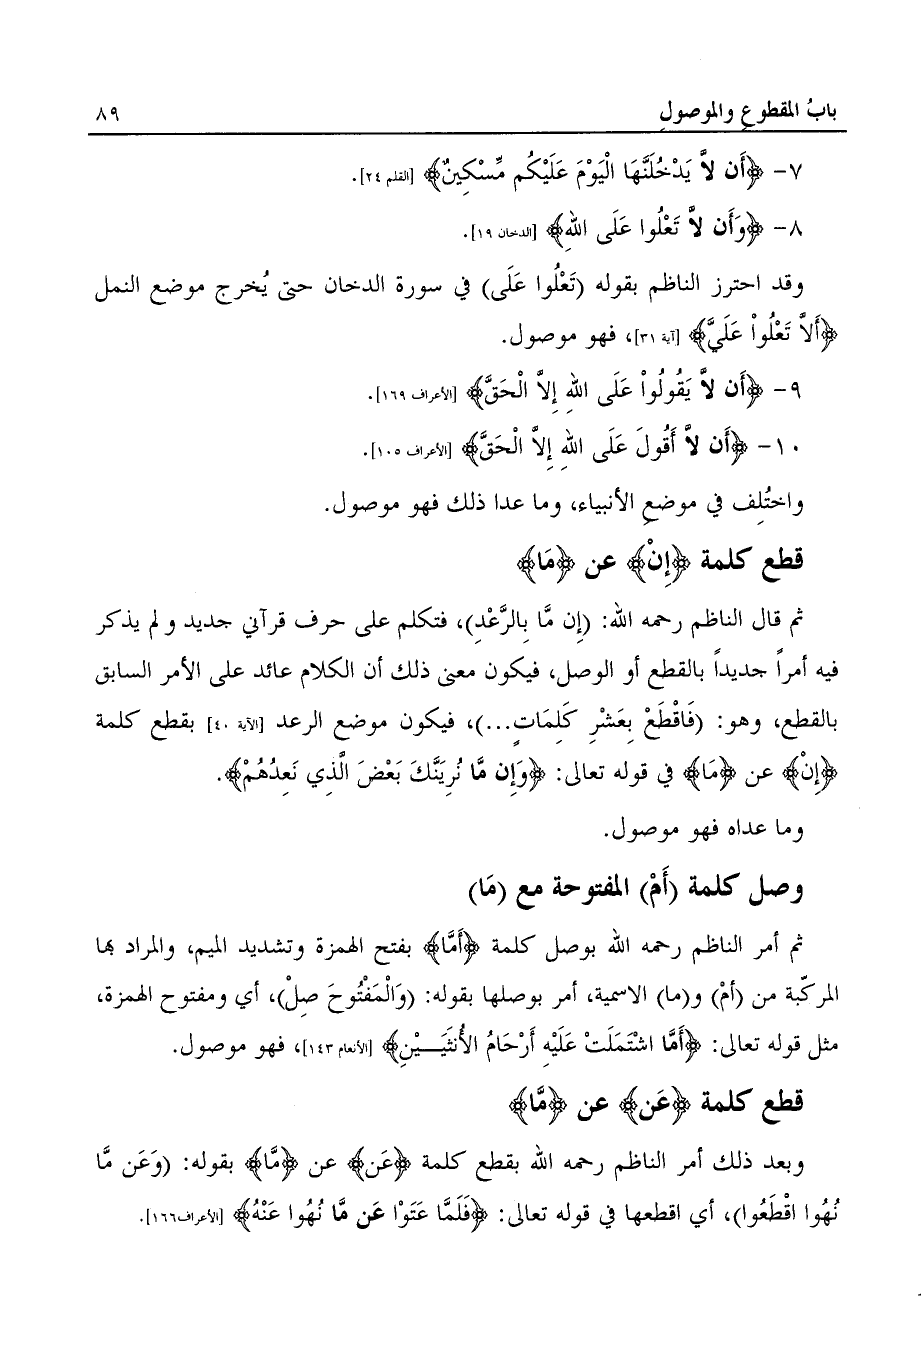 بابُ المقطوعِ والموصولِ ٨٩
٧- ﴿أَن لاَّ يَدْخُلَنَّهَا الْيَوْمَ عَلَيْكُم مِّسْكِينٌ﴾ [القلم ٢٤].
٨- ﴿وَأَن لاَّ تَعْلُوا عَلَى اللهِ﴾ [الدخان ١٩].
وقد احترز الناظم بقوله (تَعْلُوا عَلَى) في سورة الدخان حتى يُخرج موضع النمل
﴿أَلاَّ تَعْلُواْ عَلَيَّ﴾ [آية ٣١]، فهو موصول.
٩- ﴿أَن لاَّ يَقُولُواْ عَلَى اللهِ إِلاَّ الْحَقَّ﴾ [الأعراف ١٦٩].
١٠- ﴿أَن لاَّ أَقُولَ عَلَى اللهِ إِلاَّ الْحَقَّ﴾ [الأعراف ١٠٥].
واختُلِف في موضعِ الأنبياء، وما عدا ذلك فهو موصول.
قطع كلمة ﴿إِنْ﴾ عن ﴿مَا﴾
ثم قال الناظم رحمه الله: (إِن مَّا بِالرَّعْدِ)، فتكلم على حرف قرآني جديد ولم يذكر
فيه أمراً جديداً بالقطع أو الوصل، فيكون معنى ذلك أن الكلام عائد على الأمر السابق
بالقطع، وهو: (فَاقْطَعْ بِعَشْرِ كَلِمَاتٍ...)، فيكون موضع الرعد [الآية ٤٠] بقطع كلمة
﴿إِنْ﴾ عن ﴿مَا﴾ في قوله تعالى: ﴿وَإِن مَّا نُرِيَنَّكَ بَعْضَ الَّذِي نَعِدُهُمْ﴾.
وما عداه فهو موصول.
وصل كلمة (أَمْ) المفتوحة مع (مَا)
ثم أمر الناظم رحمه الله بوصل كلمة ﴿أَمَّا﴾ بفتح الهمزة وتشديد الميم، والمراد بها
المركّبة من (أمْ) و(ما) الاسمية، أمر بوصلها بقوله: (وَالْمَفْتُوحَ صِلْ)، أي ومفتوح الهمزة،
مثل قوله تعالى: ﴿أَمَّا اشْتَمَلَتْ عَلَيْهِ أَرْحَامُ الأُنثَيَـــيْنِ﴾ [الأنعام ١٤٣]، فهو موصول.
قطع كلمة ﴿عَن﴾ عن ﴿مَّا﴾
وبعد ذلك أمر الناظم رحمه الله بقطع كلمة ﴿عَن﴾ عن ﴿مَّا﴾ بقوله: (وَعَن مَّا
نُهُوا اقْطَعُوا)، أي اقطعها في قوله تعالى: ﴿فَلَمَّا عَتَوْا عَن مَّا نُهُوا عَنْهُ﴾ [الأعراف١٦٦].